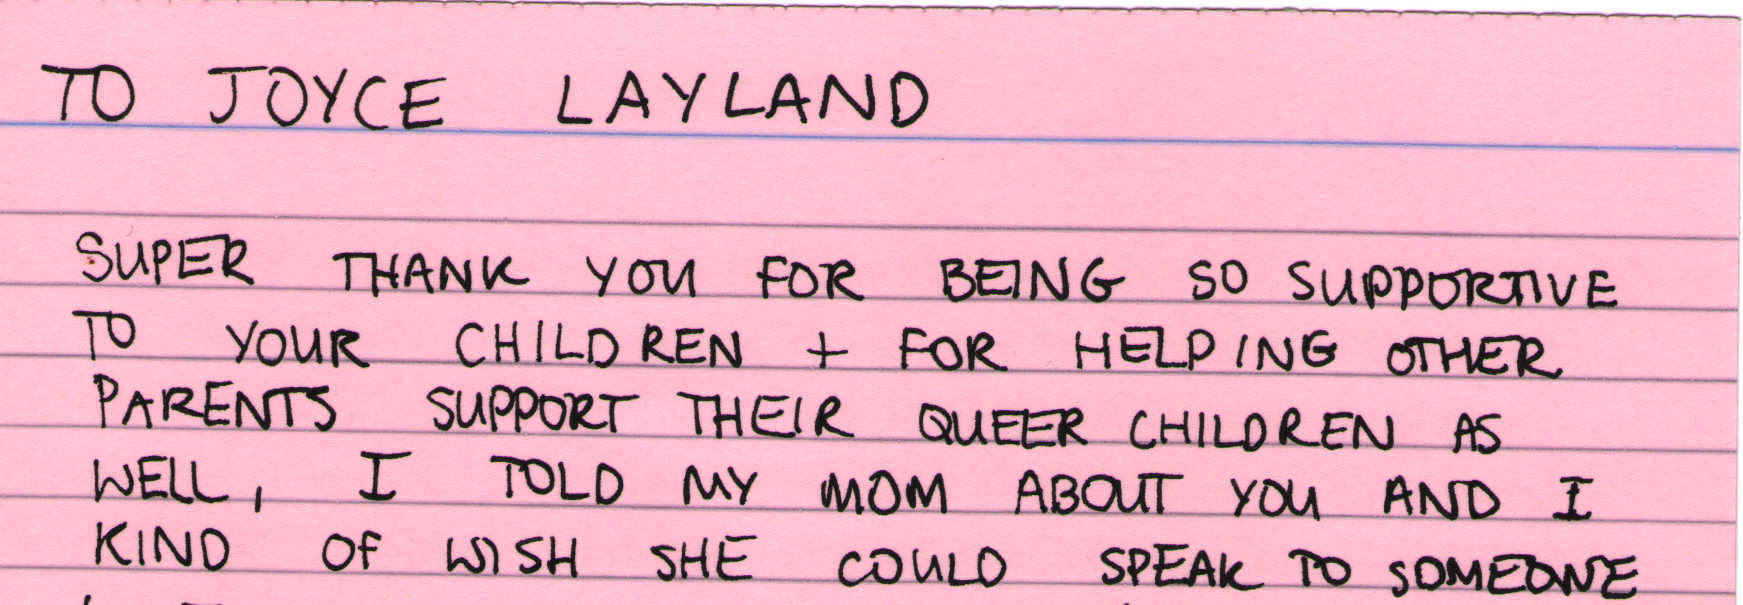 TO JOYCE LAYLAND
SUPER THANK YOU FOR BEING SO SUPPORTIVE
TO YOUR CHILDREN + FOR HELPING OTHER
PARENTS SUPPORT THEIR QUEER CHILDREN AS
WELL, I TOLD MY MOM ABOUT YOU AND I
KIND OF WISH SHE COULD SPEAK TO SOMEONE